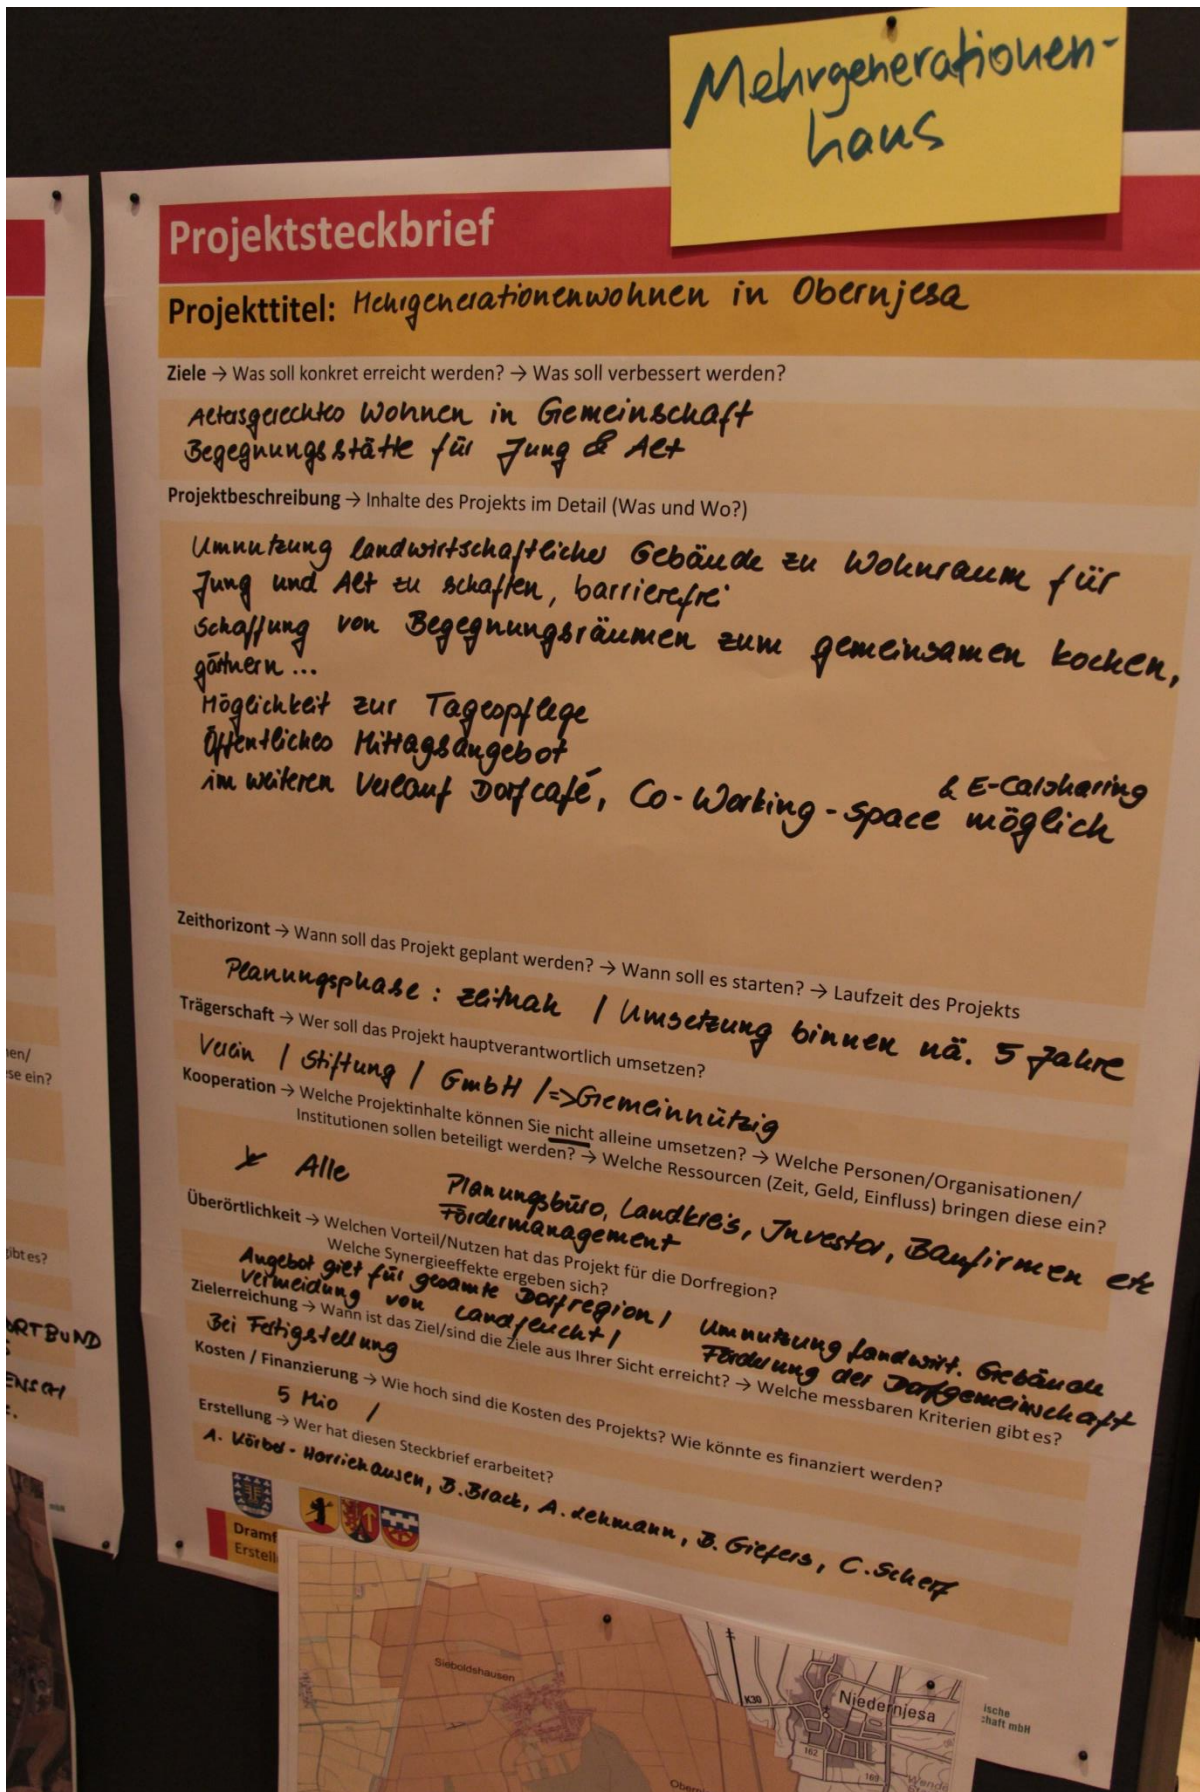 Mehrgenerationen-
haus
Projektsteckbrief
Projekttitel: Mehrgenerationenwohnen in Obernjesa
Ziele → Was soll konkret erreicht werden? → Was soll verbessert werden?
Altersgerechtes Wohnen in Gemeinschaft
Begegnungsstätte für Jung & Alt
Projektbeschreibung → Inhalte des Projekts im Detail (Was und Wo?)
Umnutzung landwirtschaftlicher Gebäude zu Wohnraum für
Jung und Alt zu schaffen, barrierefrei
Schaffung von Begegnungsräumen zum gemeinsamen kochen,
gärtnern...
Möglichkeit zur Tagespflege
Öffentliches Mittagsangebot
& E-Carsharing
im weiteren Verlauf Dorfcafé, Co-Working-space möglich
Zeithorizont → Wann soll das Projekt geplant werden? → Wann soll es starten? → Laufzeit des Projekts
Planungsphase: zeitnah / Umsetzung binnen nä. 5 Jahre
Trägerschaft → Wer soll das Projekt hauptverantwortlich umsetzen?
Verein / Stiftung / GmbH /=> Gemeinnützig
Kooperation → Welche Projektinhalte können Sie nicht alleine umsetzen? → Welche Personen/Organisationen/
Institutionen sollen beteiligt werden? → Welche Ressourcen (Zeit, Geld, Einfluss) bringen diese ein?
Alle
Planungsbüro, Landkreis, Investor, Baufirmen etc
Fördermanagement
Überörtlichkeit → Welchen Vorteil/Nutzen hat das Projekt für die Dorfregion?
Welche Synergieeffekte ergeben sich?
Angebot gilt für gesamte Dorfregion / Umnutzung landwirt. Gebäude
Vermeidung von Landflucht / Förderung der Dorfgemeinschaft
Zielerreichung → Wann ist das Ziel/sind die Ziele aus Ihrer Sicht erreicht? → Welche messbaren Kriterien gibt es?
Bei Fertigstellung
Kosten / Finanzierung → Wie hoch sind die Kosten des Projekts? Wie könnte es finanziert werden?
5 Mio /
Erstellung → Wer hat diesen Steckbrief erarbeitet?
A. Körber-Harriehausen, B. Brack, A. Lehmann, B. Giefers, C. Scherf
Dramf
Erstell
Sieboldshausen
K30
Niedernjesa
162
169
Wende
Obern
ische
chaft mbH
en/
se ein?
gibt es?
ORTBUND
ENSCH